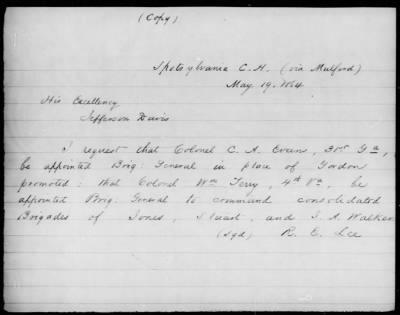 (Copy)
Spotsylvania C. H. (via Mulford)
May 19. 1864
His Excellency
Jefferson Davis
I request that Colonel C. A. Evans, 31st Ga,
be appointed Brig: General in place of Gordon
promoted: that Colonel Wm Terry, 4th Va, be
appointed Brig: General to command consolidated
Brigades of Jones, Stuart, and J. A. Walker
(Sgd) R. E. Lee